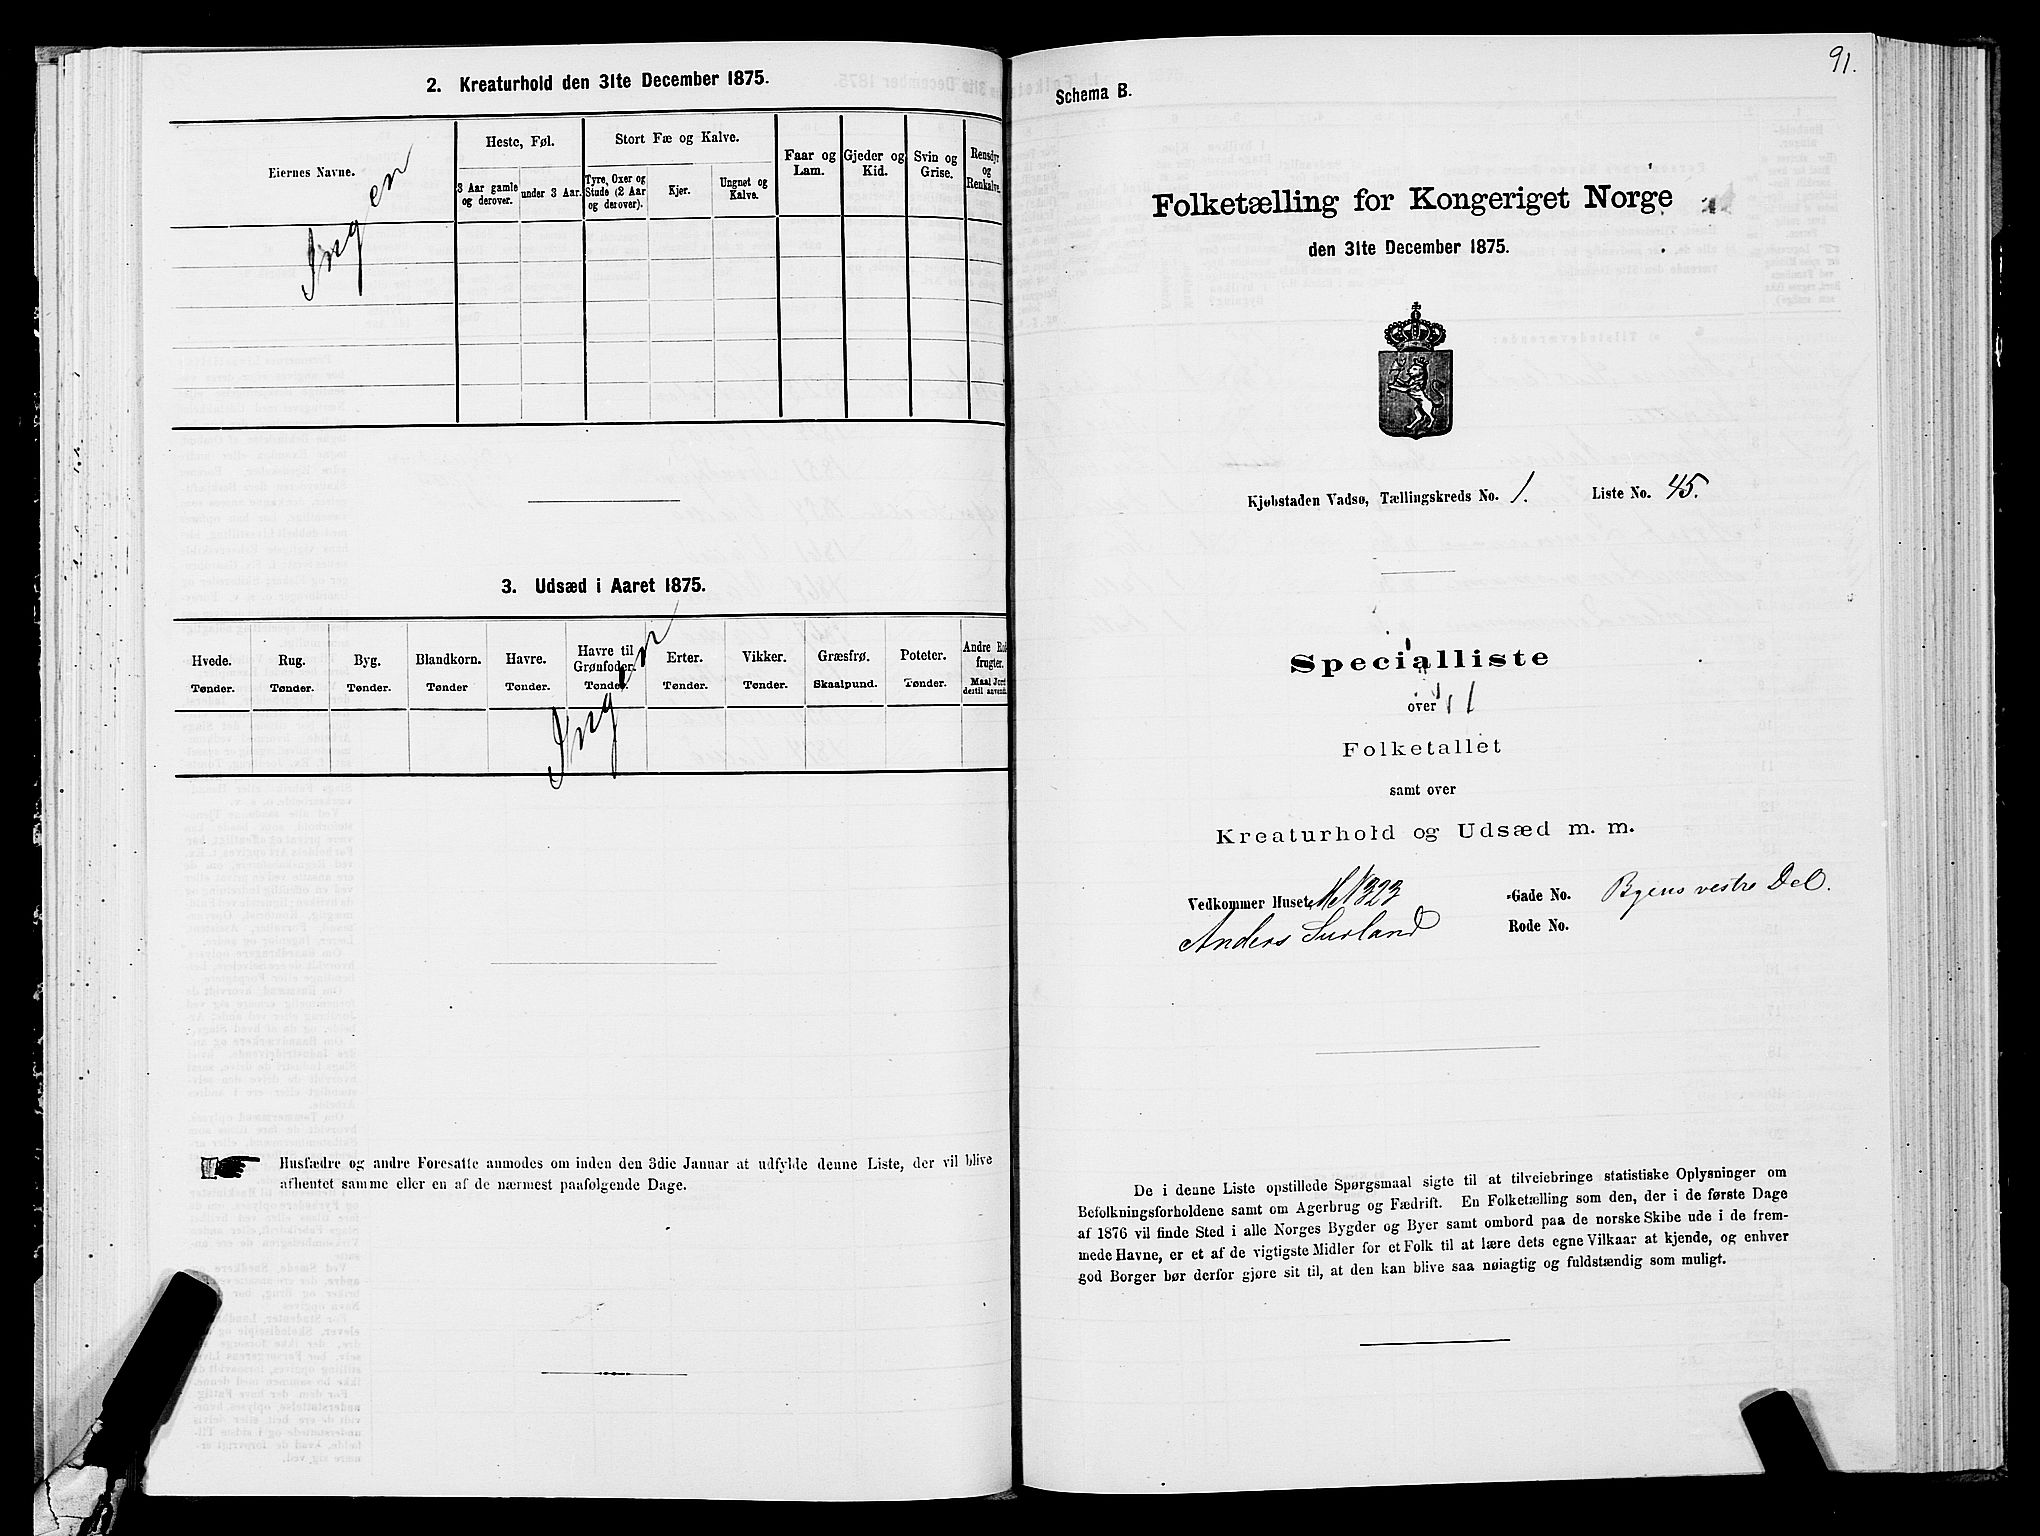 2. Kreaturhold den 31te December 1875.
Eiernes Navne.
Heste, Føl.
Stort Fæ og Kalve.
Faar og Lam.
Gjeder og Kid.
Svin og Grise.
Rensdyr og Renkalve.
3 Aar gamle og derover.
under 3 Aar.
Tyre, Oxer og Stude (2 Aar og derover).
Kjer.
Ungnet og Kalve.
Ingen
3. Udsæd i Aaret 1875.
Hvede. Rug. Byg. Blandkorn. Havre. Havre til Grønfoder. Erter. Vikker. Græsfrø. Poteter. Andre Rodfrugter.
Tønder. Tønder. Tønder. Tønder Tønder. Tønder. Tønder. Tønder. Skaalpund. Tønder. Maal Jord dertil anvendt.
Ingen
Husfædre og andre Foresatte anmodes om inden den 3die Januar at udfylde denne Liste, der vil blive
afhentet samme eller en af de nærmest paafølgende Dage.
91.
Schema B.
Folketælling for Kongeriget Norge
den 31te December 1875.
Kjøbstaden Vadsø, Tællingskreds No. 1. Liste No. 45.
Specialliste
over
Folketallet
samt over
Kreaturhold og Udsæd m. m.
Vedkommer Huset M N 323 -Gade No. Byens vestre Del.
Anders Surland Rode No.
De i denne Liste opstillede Spørgsmaal sigte til at tilveiebringe statistiske Oplysninger om
Befolkningsforholdene samt om Agerbrug og Fædrift. En Folketælling som den, der i de første Dage
af 1876 vil finde Sted i alle Norges Bygder og Byer samt ombord paa de norske Skibe ude i de frem-
mede Havne, er et af de vigtigste Midler for et Folk til at lære dets egne Vilkaar at kjende, og enhver
god Borger bør derfor gjøre sit til, at den kan blive saa nøiagtig og fuldstændig som muligt.